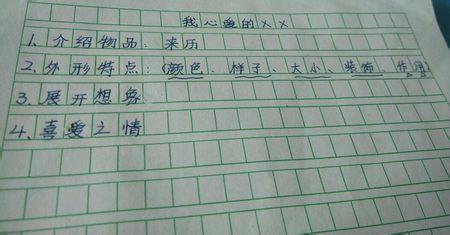 我心爱的××
1、介绍物品：来历
2、外形特点：(颜色、样子、大小、装饰、作用)
3、展开想象
4、喜爱之情